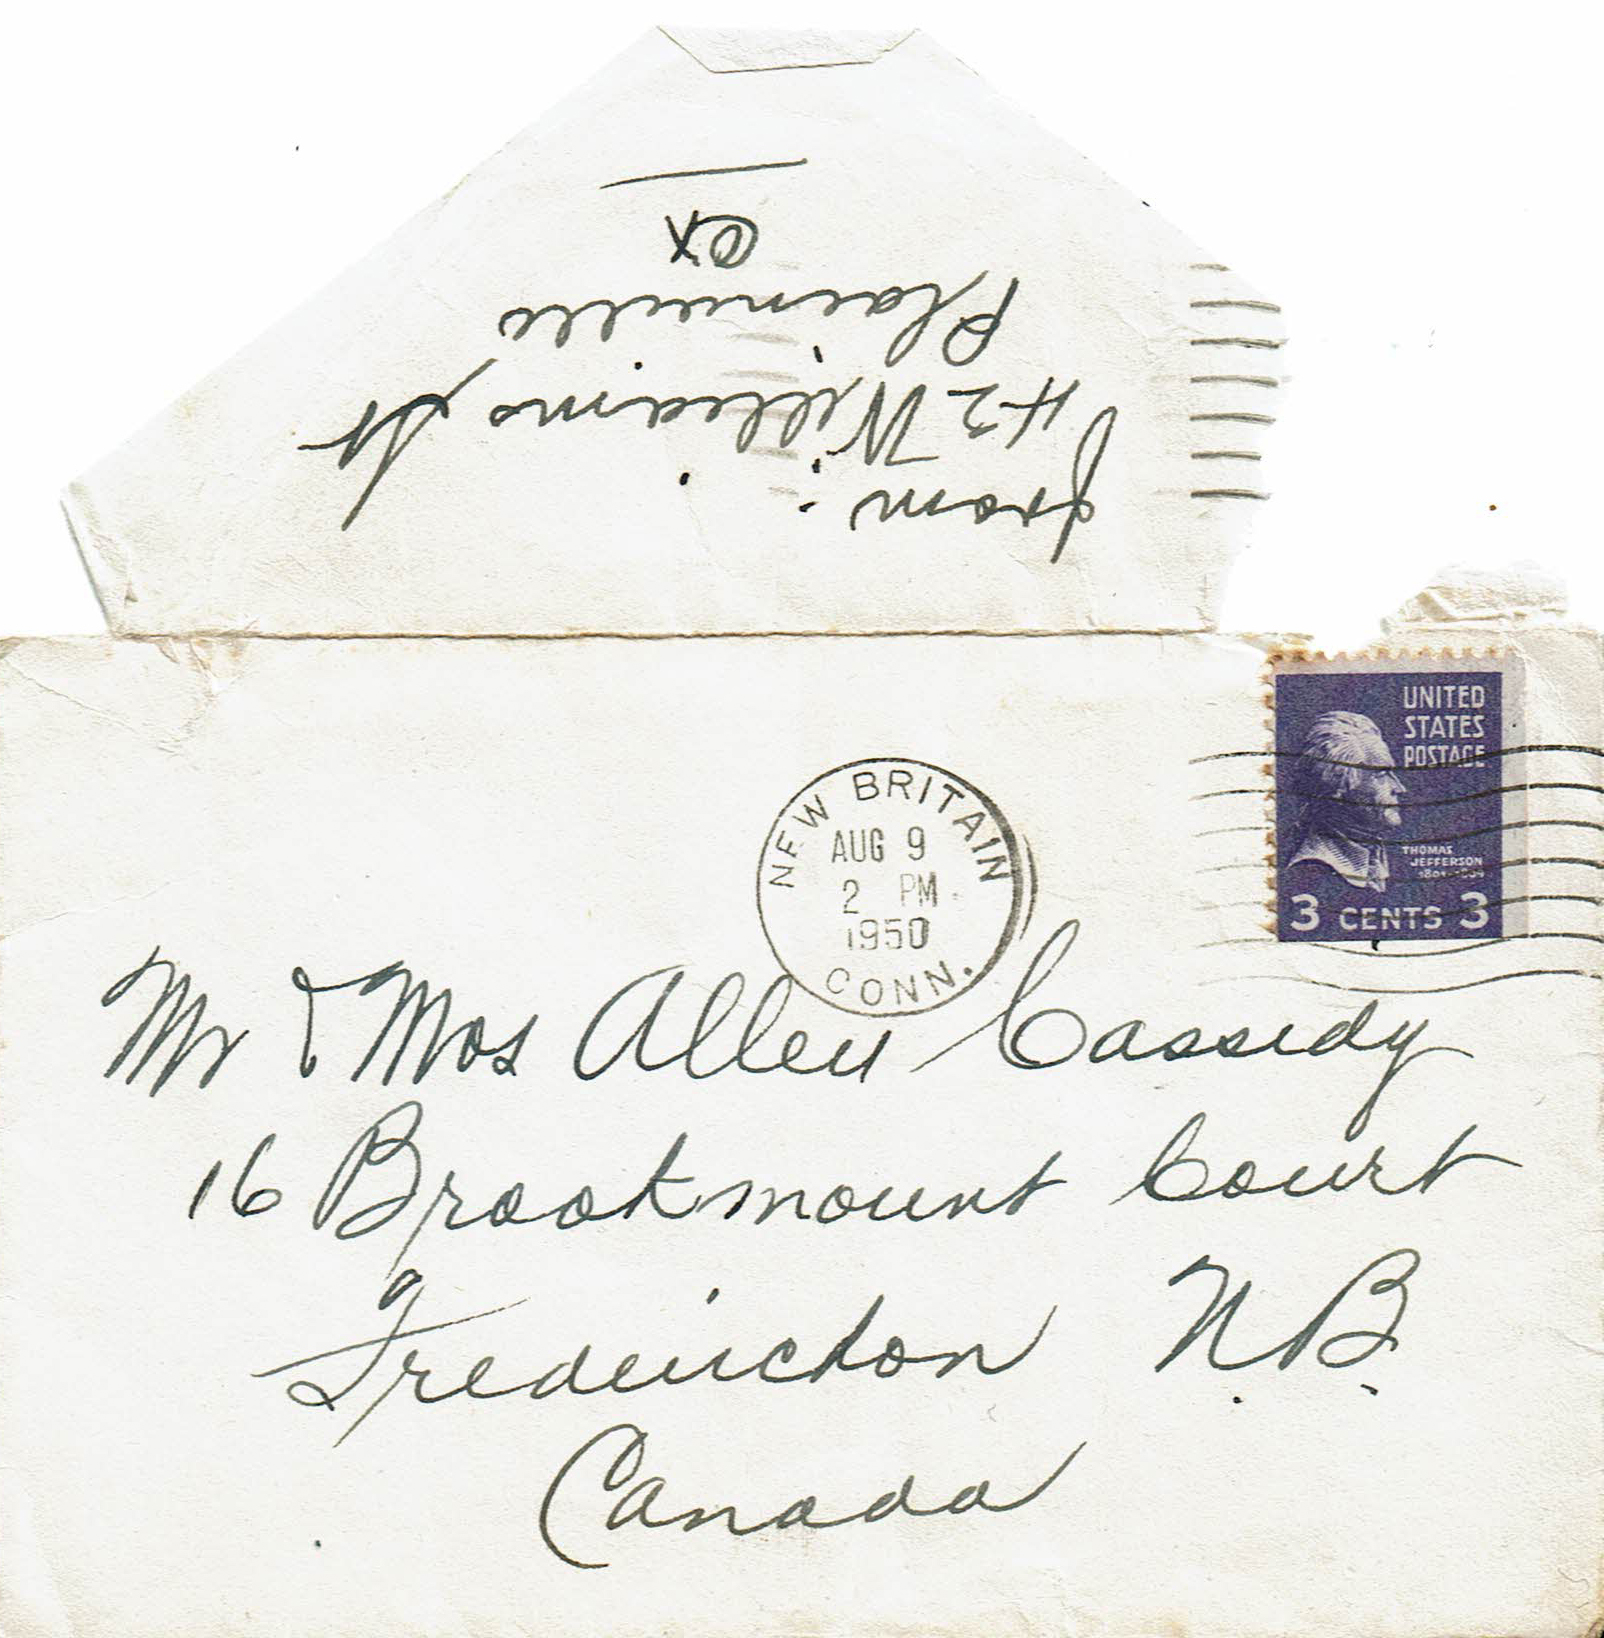 from:
42 Williams St
Plainville
Ct
UNITED
STATES
POSTAGE
THOMAS
JEFFERSON
1801-1809
3 CENTS 3
NEW BRITAIN
AUG 9
2 PM
1950
CONN.
Mr & Mrs Allen Cassidy
16 Brookmount Court
Fredericton N.B.
Canada